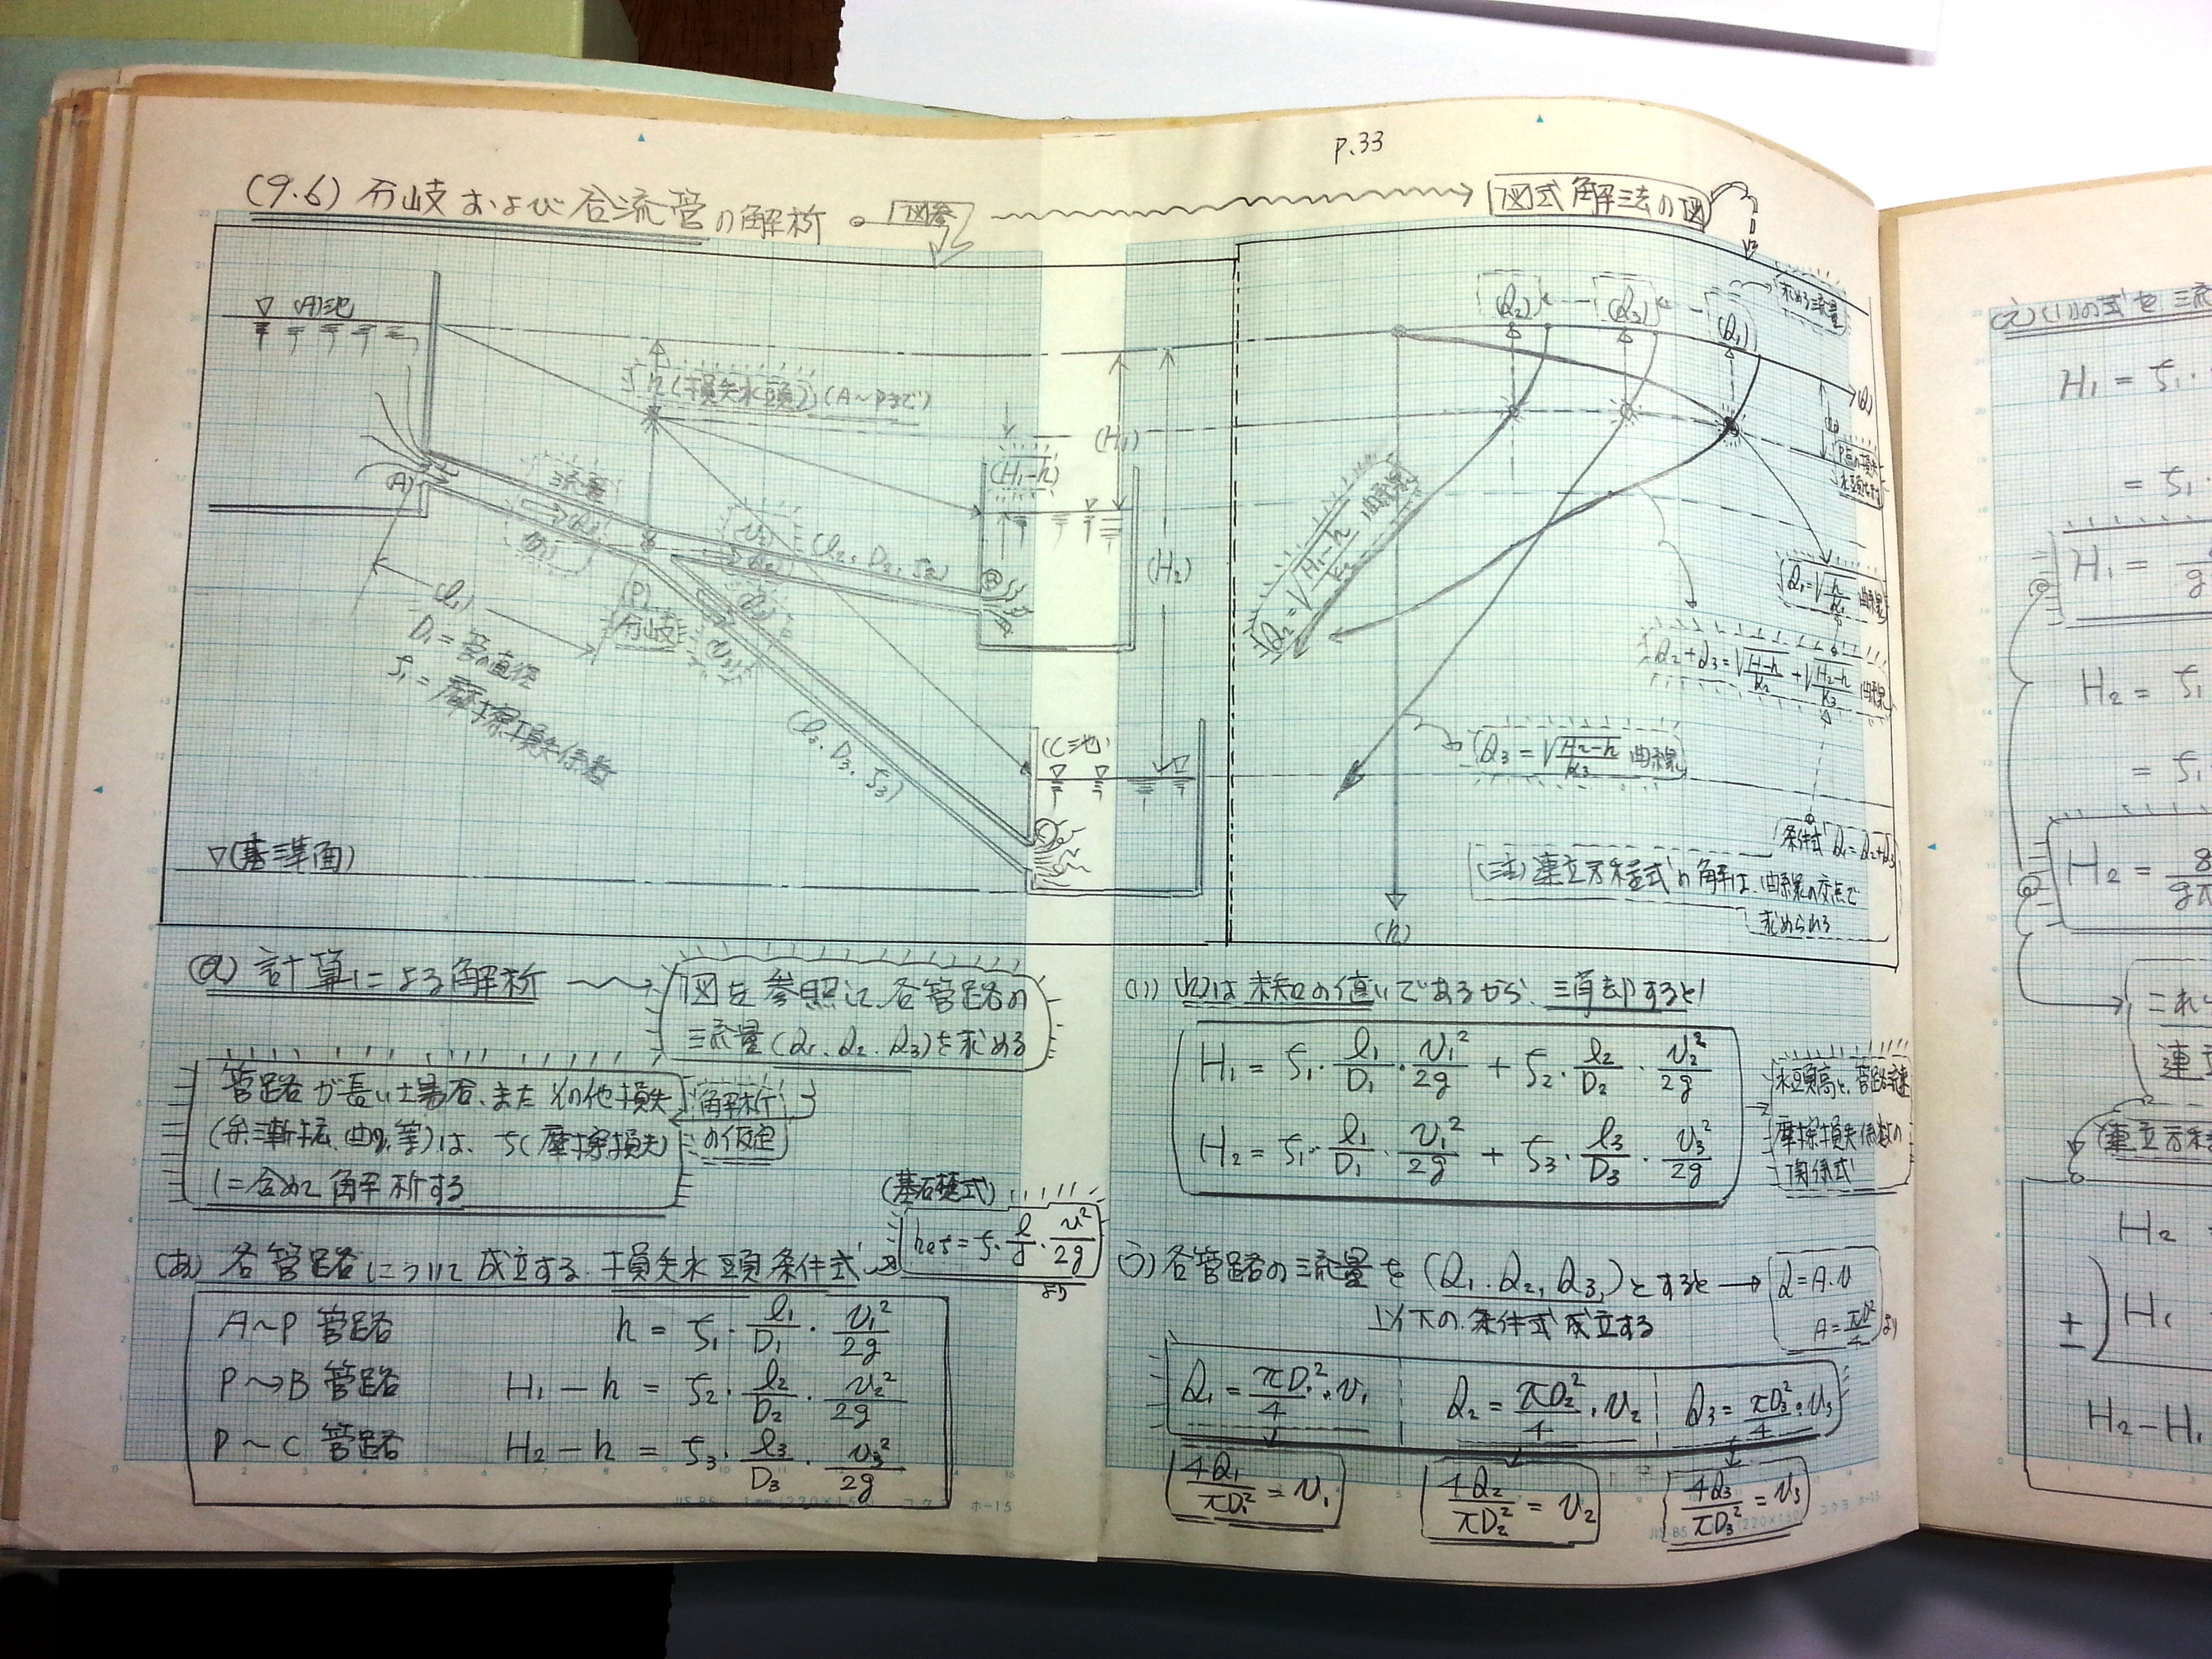 P.33
(9.6) 分岐および合流管の解析
図参
図式解法の図
(A)池
h(損失水頭)(A~Pまで)
(H1-h)
(H1)
(H2)
(A)
流量
(l2. D2. f2)
(P)
分岐
(l1)
D1=管の直径
f1=摩擦損失係数
(l3. D3. f3)
(C池)
▽(基準面)
(Q2)
(Q3)
(Q1)
求める流量
(Q)
Q2=√(H1-h/k2) 曲線
Q1=√(h/k1) 曲線
Q2+Q3=√(H1-h/k2)+√(H2-h/k3) 曲線
Q3=√(H2-h/k3) 曲線
条件式 Q1=Q2+Q3
(注)連立方程式の解は、曲線の交点で
求められる
(h)
(a) 計算による解析
図を参照に、各管路の
流量(Q1. Q2. Q3)を求める
管路が長い場合、またその他損失
(弁、漸拡、曲り、等)は、f(摩擦損失)
に含めて解析する
解析
の仮定
(あ) 各管路について成立する、損失水頭条件式
(基礎式)
より
A~P 管路 h = f1・l1/D1・v1²/2g
P~B 管路 H1-h = f2・l2/D2・v2²/2g
P~C 管路 H2-h = f3・l3/D3・v3²/2g
(い) (h)は未知の値いであるから、消却すると
H1 = f1・l1/D1・v1²/2g + f2・l2/D2・v2²/2g
H2 = f1・l1/D1・v1²/2g + f3・l3/D3・v3²/2g
水頭高と、管路流速
摩擦損失係数の
関係式
う) 各管路の流量を (Q1. Q2, Q3,) とすると
以下の、条件式成立する
Q=A・v
A=πD²/4 より
Q1=πD1²/4・v1
Q2=πD2²/4・v2
Q3=πD3²/4・v3
4Q1/πD1² = v1
4Q2/πD2² = v2
4Q3/πD3² = v3
H1 = f1・
= f1・
H1 =
H2 = f1
= f1
H2 =
連立
H2
±) H1
H2-H1